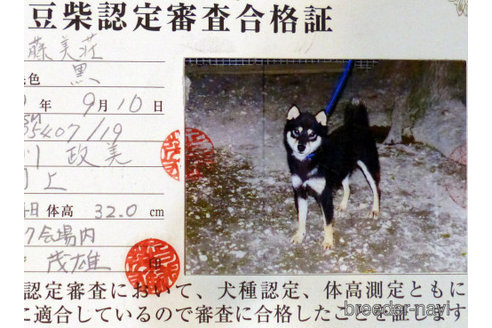 豆柴認定審査合格証
藤美荘
色 黒
年 9月10日
35407/19
川 政美
同上
日 体高 32.0 cm
会場内
茂雄 印
認定審査において、犬種認定、体高測定ともに
に適合しているので審査に合格したことを証します
breeder-navi